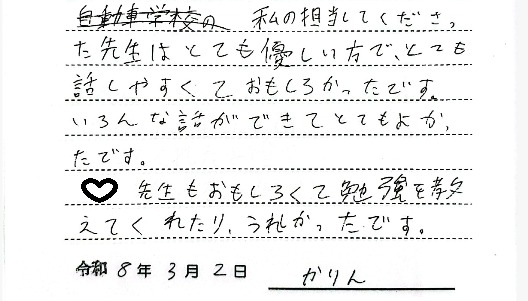 自動車学校の 私の担当してくださっ
た先生はとても優しい方で、とても
話しやすくておもしろかったです。
いろんな話ができてとてもよかっ
たです。
♡ 先生もおもしろくて勉強を教
えてくれたり、うれかったです。
令和 8年 3月 2日 かりん